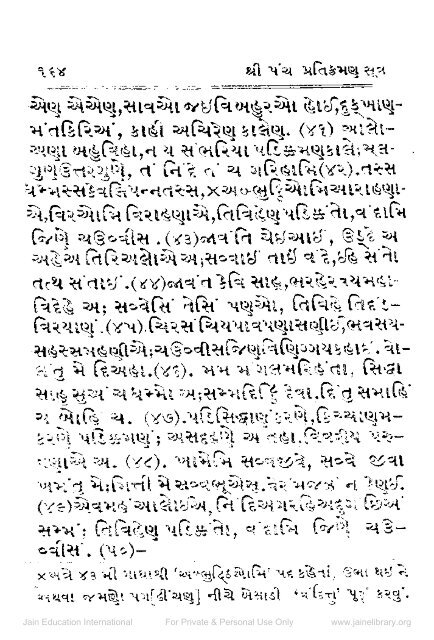 ૧૬૪ શ્રી પંચ પ્રતિક્રમણ સૂત્ર
એણ એએણ,સાવઓ જઇવિ બહુરઓ હોઈ,દુક્ખાણ-
મંતકિરિઅં, કાહી અચિરેણ કાલેણ. (૪૧) આલો-
અણા બહુવિહા,ન ય સંભરિયા પડિક્કમણકાલે;મૂલ-
ગુણઉત્તરગુણે, તં નિંદે તં ચ ગરિહામિ(૪૨).તસ્સ
ધમ્મસ્સકેવલિપન્નતસ્સ,×અબ્ભુટ્ઠિઓમિઆરાહણા-
એ,વિરઓમિ વિરાહણાએ,તિવિહેણ પડિક્કંતો,વંદામિ
જિણે ચઉવ્વીસં.(૪૩)જાવંતિ ચેઈઆઈં, ઉડ્ઢે અ
અહેઅ તિરિઅલોએ અ;સવ્વાઈં તાઈં વંદે,ઈહ સંતો
તત્થ સંતાઈં.(૪૪)જાવંત કેવિ સાહૂ,ભરહેરવયમહા-
વિદેહે અ; સવ્વેસિં તેસિં પણઓ, તિવિહેણ તિદંડ-
વિરયાણં.(૪૫).ચિરસંચિયપાવપણાસણીઈ,ભવસય-
સહસ્સમહણીએ;ચઉવ્વીસજિણવિણિગ્ગયકહાઈ, વો-
લંતુ મે દિઅહા.(૪૬). મમ મંગલમરિહંતા, સિદ્ધા
સાહૂ સુઅં ચ ધમ્મો અ;સમ્મદિટ્ઠિ દેવા,દિંતુ સમાહિં
ચ બોહિં ચ. (૪૭).પડિસિદ્ધાણં કરણે,કિચ્ચાણમ-
કરણે પડિક્કમણં; અસદ્દહણે અ તહા,વિવરીય પરૂ-
વણાએ અ. (૪૮). ખામેમિ સવ્વજીવે, સવ્વે જીવા
ખમંતુ મે;મિત્તી મે સવ્વભૂએસુ,વેરં મજ્ઝં ન કેણઈ.
(૪૯)એવમહં આલોઈઅ,નિંદિઅગરહિઅદુગંછિઅં
સમ્મં; તિવિહેણ પડિક્કંતો, વંદામિ જિણે ચઉ-
વ્વીસં. (૫૦)-
×અત્રે ૪૩ મી ગાથાથી ‘અબ્ભુટ્ઠિઓમિ’ પદ કહેતાં, ઉભા થઈ ને
અથવા જમણો પગ(ઢીંચણ) નીચે બેસાડી ‘વંદિત્તુ’ પૂરું કરવું.
Jain Education International For Private & Personal Use Only www.jainelibrary.org